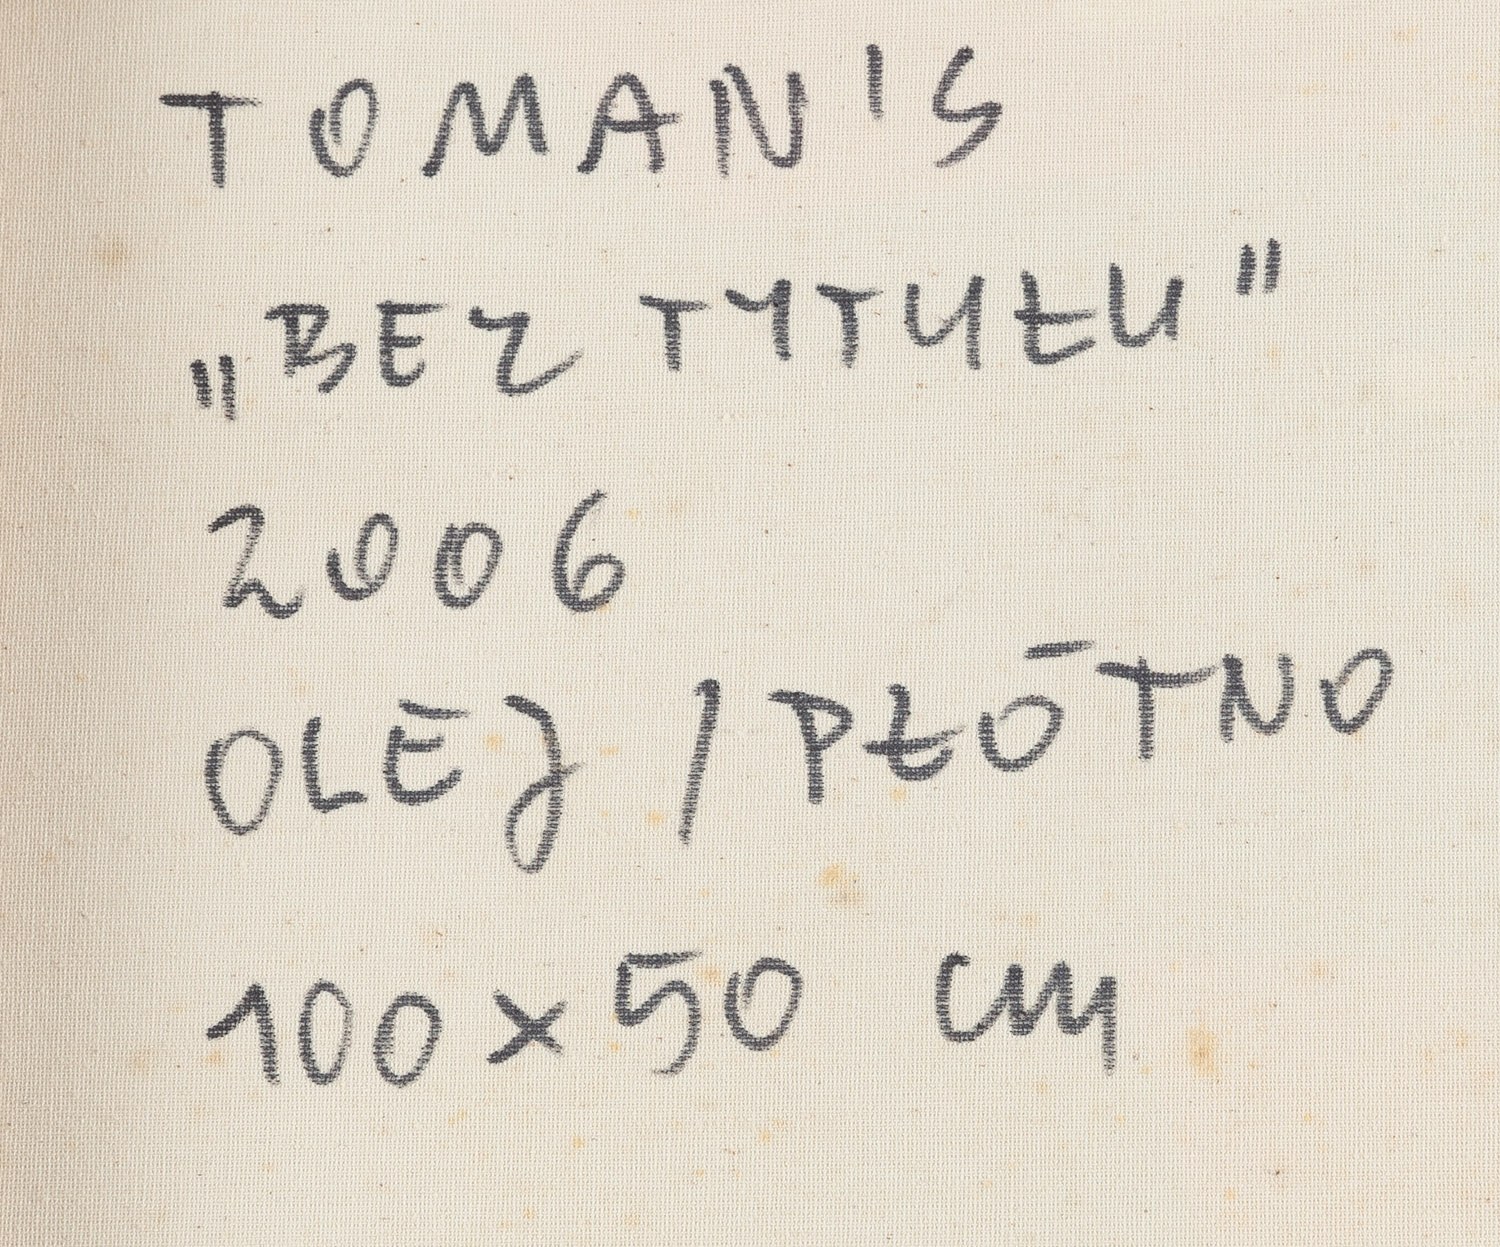 TOMAN'S
„BEZ TYTUŁU"
2006
OLEJ / PŁÓTNO
100 x 50 cm